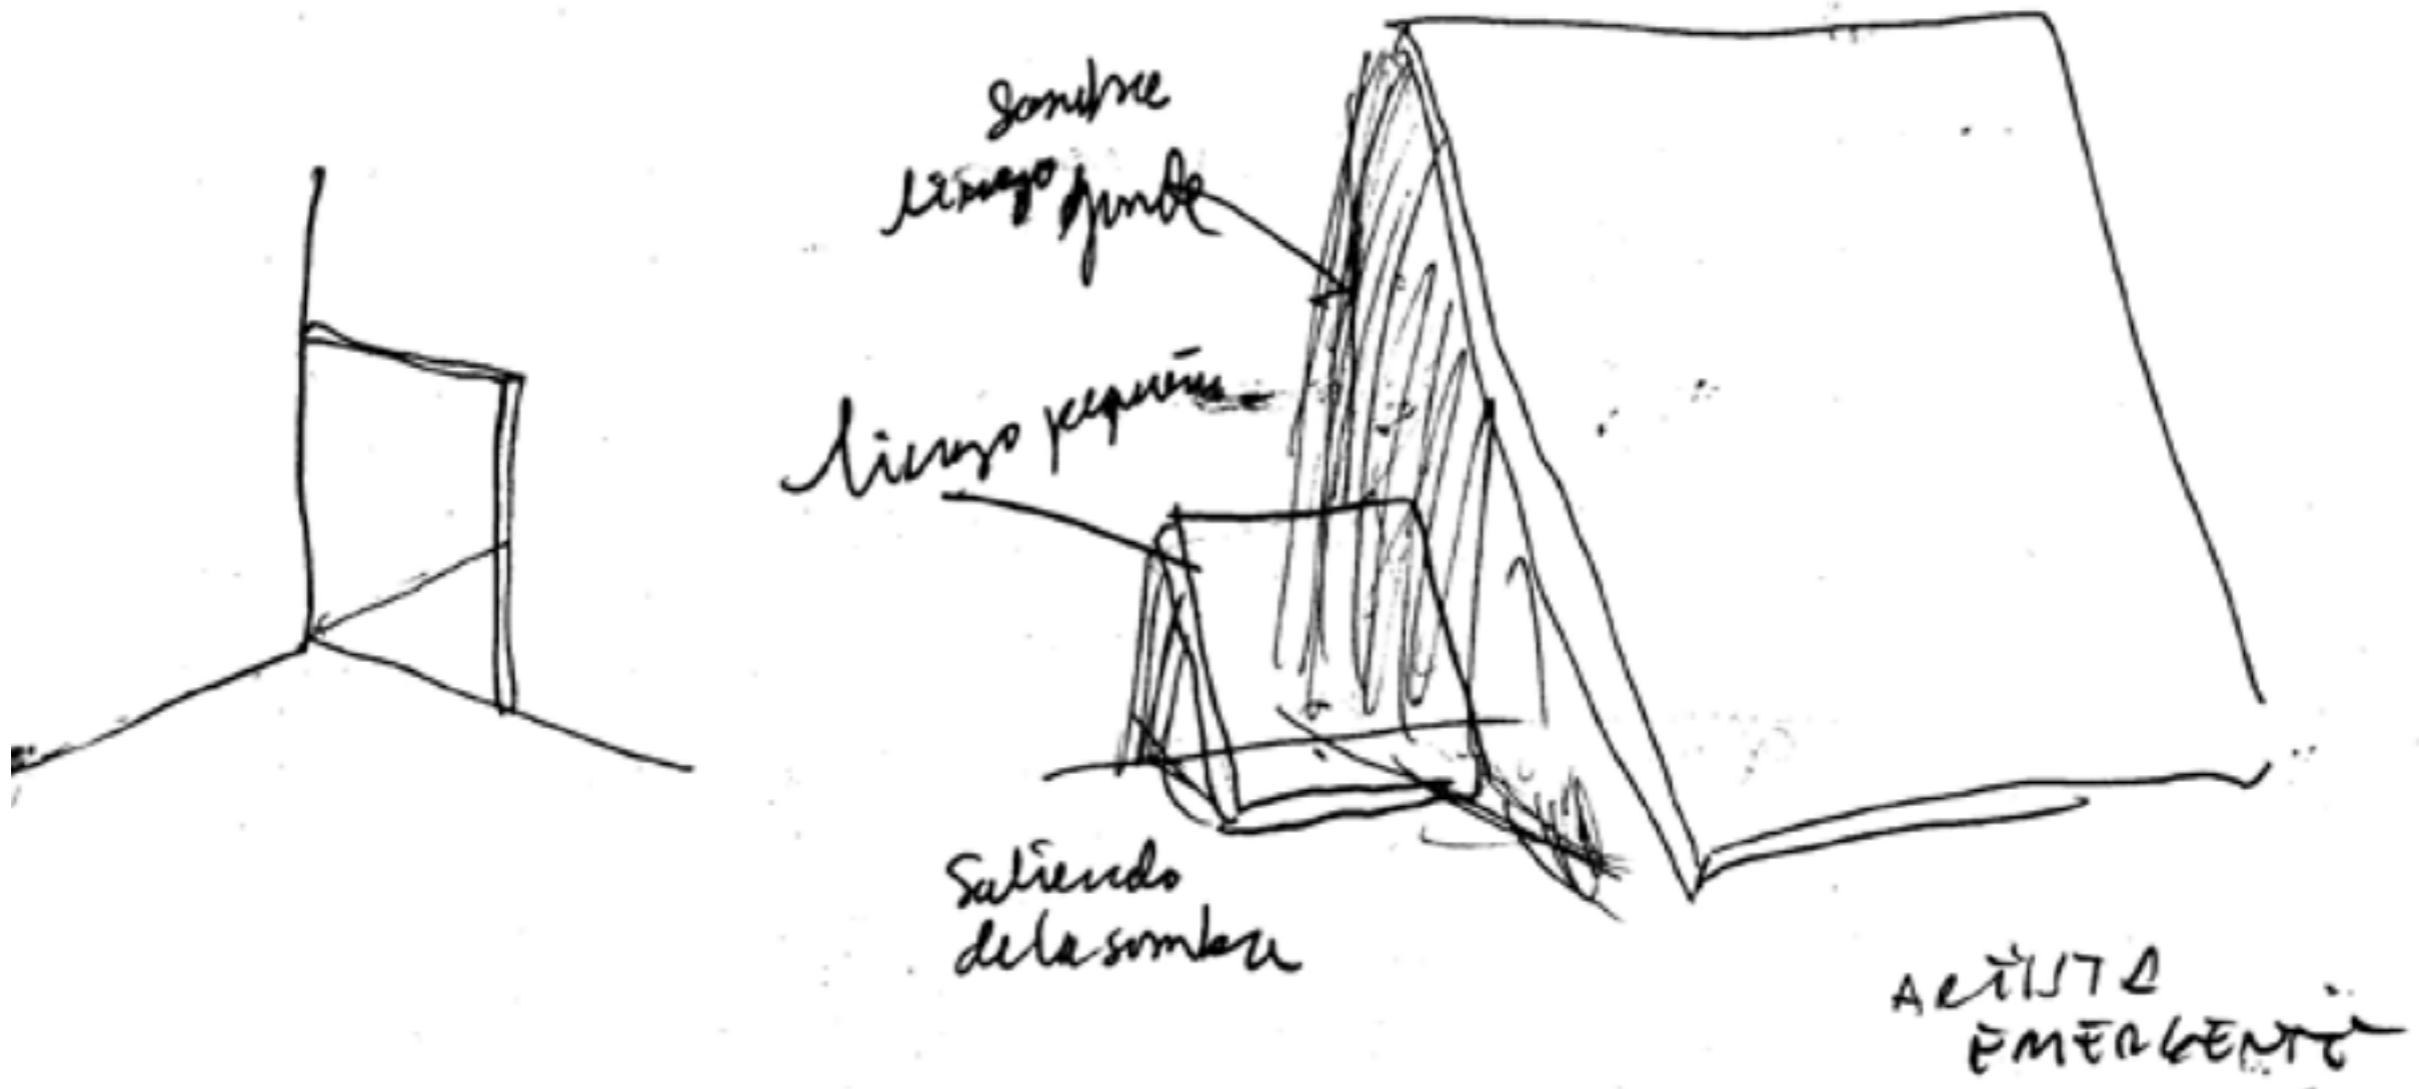 Sombra
lienzo grande
lienzo pequeño
Saliendo
de la sombra
ARTISTA
EMERGENTE